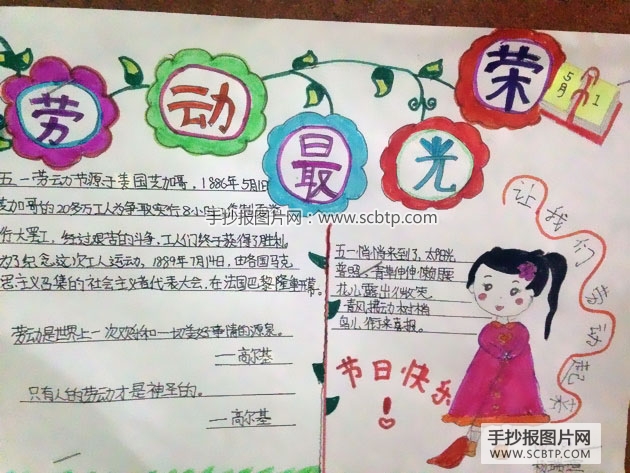 劳动最光荣
5月1
五一劳动节源于美国芝加哥,1886年5月1日
芝加哥的20多万工人为争取实行8小
手抄报图片网:www.scbtp.com
行大罢工,经过艰苦的斗争,工人们终于获得了胜利。
为了纪念这次工人运动,1889年7月14日,由各国马克
思主义者召集的社会主义者代表大会,在法国巴黎隆重开幕。
劳动是世界上一次欢乐和一切美好事情的源泉。
——高尔基
只有人的劳动才是神圣的。
——高尔基
五一悄悄来到了,太阳光
花儿露出微笑
春风
鸟儿 来喜报。
节日快乐!
让我们劳动起来
手抄报图片网
WWW.SCBTP.COM